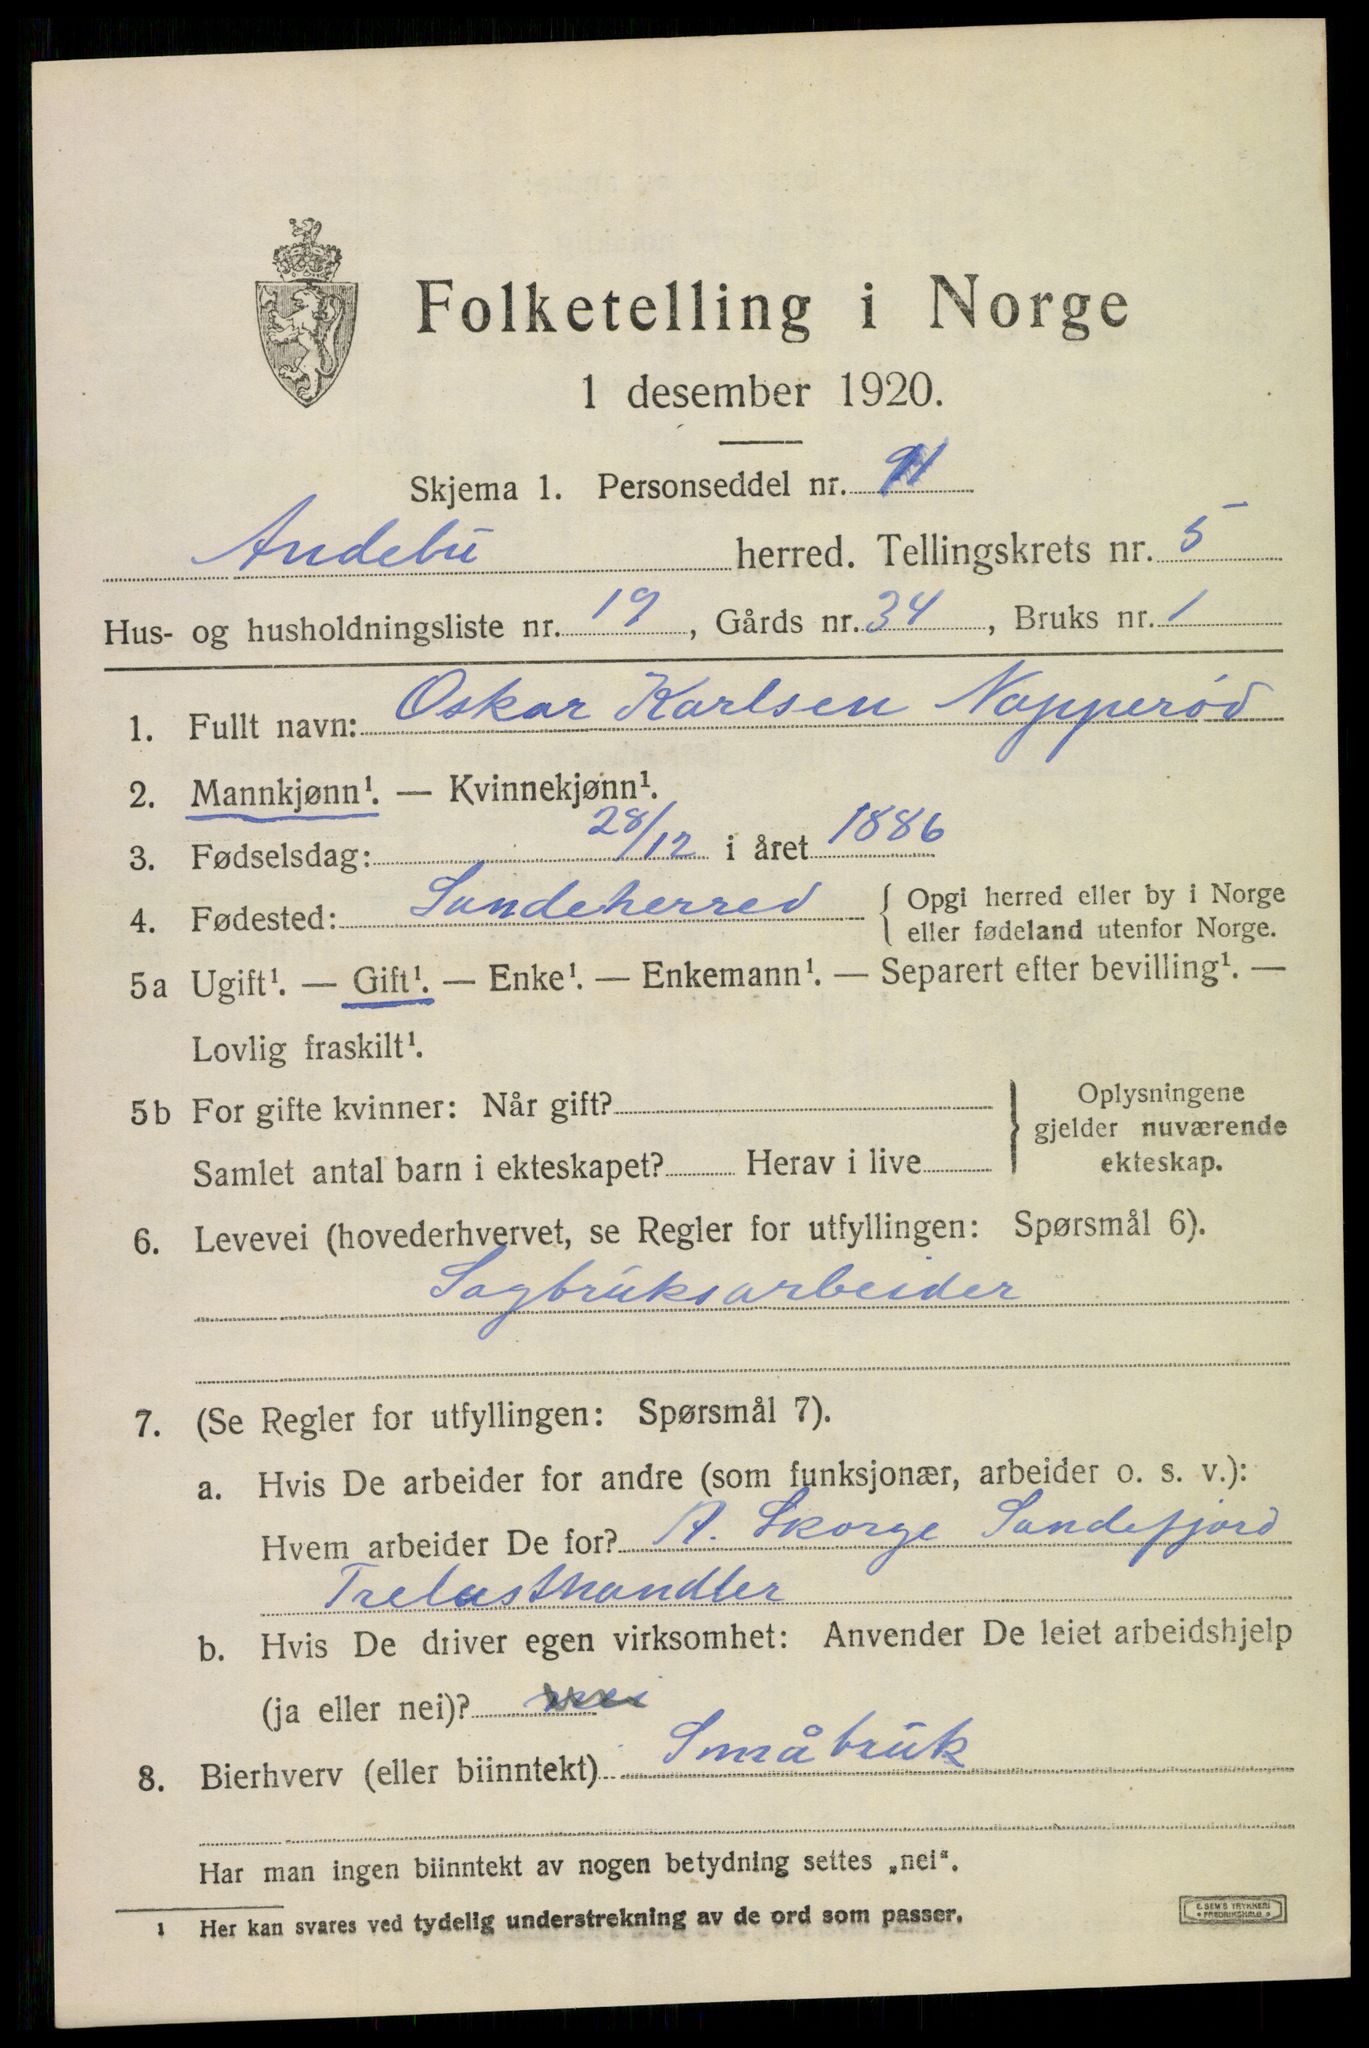 Folketelling i Norge
1 desember 1920.
Skjema 1. Personseddel nr.
Andebu herred. Tellingskrets nr. 5
Hus- og husholdningsliste nr. 19, Gårds nr. 34, Bruks nr. 1
1. Fullt navn: Oskar Karlsen Napperød
2. Mannkjønn¹. — Kvinnekjønn¹.
3. Fødselsdag: 28/12 i året 1886
4. Fødested: Sandeherred { Opgi herred eller by i Norge
eller fødeland utenfor Norge.
5a Ugift¹. — Gift¹. — Enke¹. — Enkemann¹. — Separert efter bevilling¹. —
Lovlig fraskilt¹.
5b For gifte kvinner: Når gift?
Samlet antal barn i ekteskapet? Herav i live
Oplysningene
gjelder nuværende
ekteskap.
6. Levevei (hovederhvervet, se Regler for utfyllingen: Spørsmål 6).
Sagbruksarbeider
7. (Se Regler for utfyllingen: Spørsmål 7).
a. Hvis De arbeider for andre (som funksjonær, arbeider o. s. v.):
Hvem arbeider De for? A. Skorge Sandefjord
Trelasthandler
b. Hvis De driver egen virksomhet: Anvender De leiet arbeidshjelp
(ja eller nei)? nei
8. Bierhverv (eller biinntekt) Småbruk
Har man ingen biinntekt av nogen betydning settes „nei“.
¹ Her kan svares ved tydelig understrekning av de ord som passer.
E. SEM'S TRYKKERI
• FREDRIKSHALD •